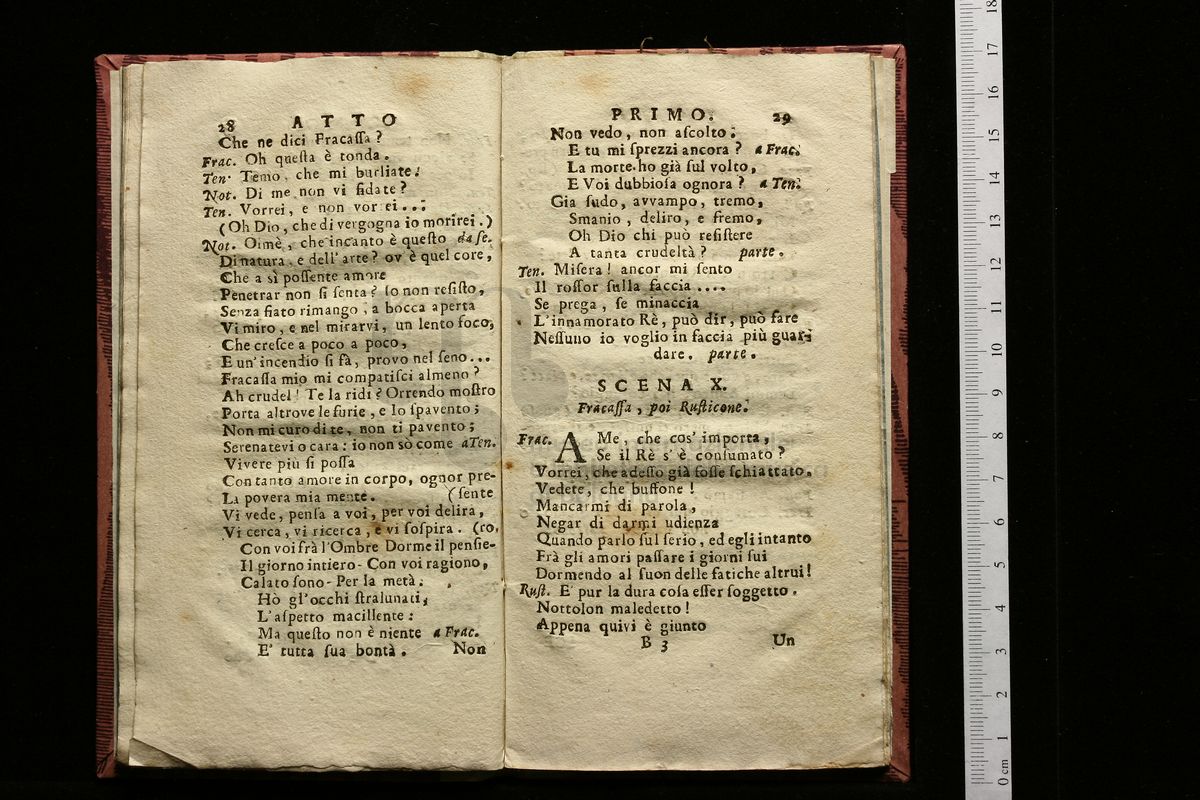 28 ATTO
Che ne dici Fracassa?
Frac. Oh questa è tonda.
Ten. Temo, che mi burliate.
Not. Di me non vi fidate?
Ten. Vorrei, e non vorrei...
(Oh Dio, che di vergogna io morirei.)
Not. Oimè, che incanto è questo da se.
Di natura, e dell'arte? ov'è quel core,
Che a sì possente amore
Penetrar non si senta? Io non resisto,
Senza fiato rimango, a bocca aperta
Vi miro, e nel mirarvi, un lento foco,
Che cresce a poco a poco,
E un'incendio si fà, provo nel seno...
Fracassa mio mi compatisci almeno?
Ah crudel! Te la ridi? Orrendo mostro
Porta altrove le furie, e lo spavento;
Non mi curo di te, non ti pavento;
Serenatevi o cara: io non sò come a Ten.
Vivere più si possa
Con tanto amore in corpo, ognor pre-
La povera mia mente. (sente
Vi vede, pensa a voi, per voi delira,
Vi cerca, vi ricerca, e vi sospira. (ro,
Con voi frà l'Ombre Dorme il pensie-
Il giorno intiero- Con voi ragiono,
Calato sono- Per la metà:
Hò gl'occhi stralunati,
L'aspetto macillente:
Ma questo non è niente a Frac.
E' tutta sua bontà. Non
PRIMO. 29
Non vedo, non ascolto:
E tu mi sprezzi ancora? a Frac.
La morte ho già sul volto,
E Voi dubbiosa ognora? a Ten.
Gia sudo, avvampo, tremo,
Smanio, deliro, e fremo,
Oh Dio chi può resistere
A tanta crudeltà? parte.
Ten. Misera! ancor mi sento
Il rossor sulla faccia....
Se prega, se minaccia
L'innamorato Rè, può dir, può fare
Nessuno io voglio in faccia più guar-
dare. parte.
SCENA X.
Fracassa, poi Rusticone.
Frac. A Me, che cos' importa,
Se il Rè s'è consumato?
Vorrei, che adesso già fosse schiattato.
Vedete, che buffone!
Mancarmi di parola,
Negar di darmi udienza
Quando parlo sul serio, ed egli intanto
Frà gli amori passare i giorni sui
Dormendo al suon delle fatiche altrui!
Rust. E' pur la dura cosa esser soggetto.
Nottolon maledetto!
Appena quivi è giunto
B 3 Un
18
17
16
15
14
13
12
11
10
9
8
7
6
5
4
3
2
1
0 cm